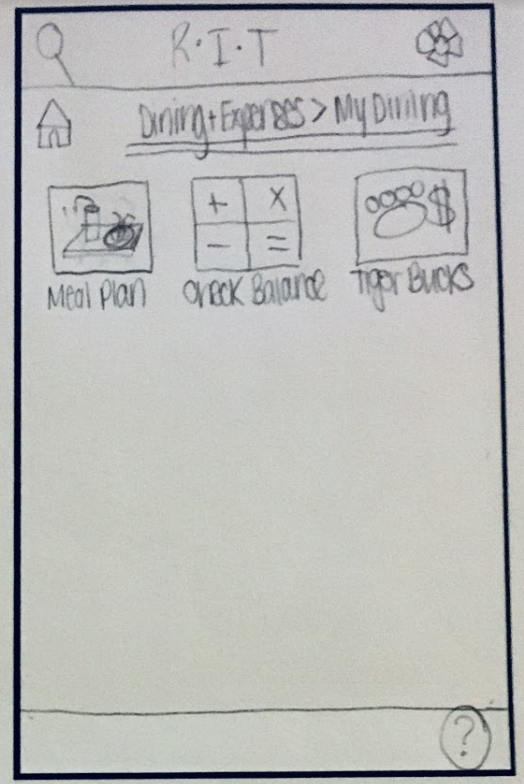 R·I·T
Dining+Expenses > My Dining
+ x
- =
$
Meal Plan
Check Balance
Tiger Bucks
?